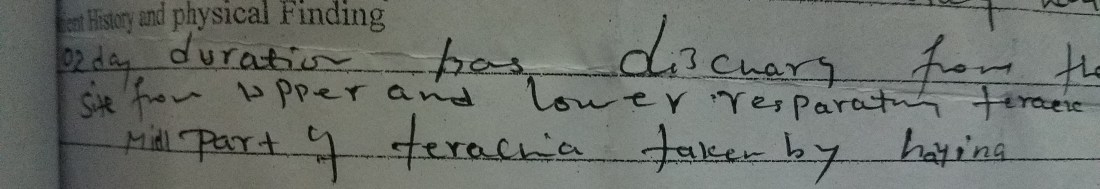 ent History and physical Finding
02 day duration has discharg from the
site from upper and lower resparatury
Midl part of terachia taken by haying